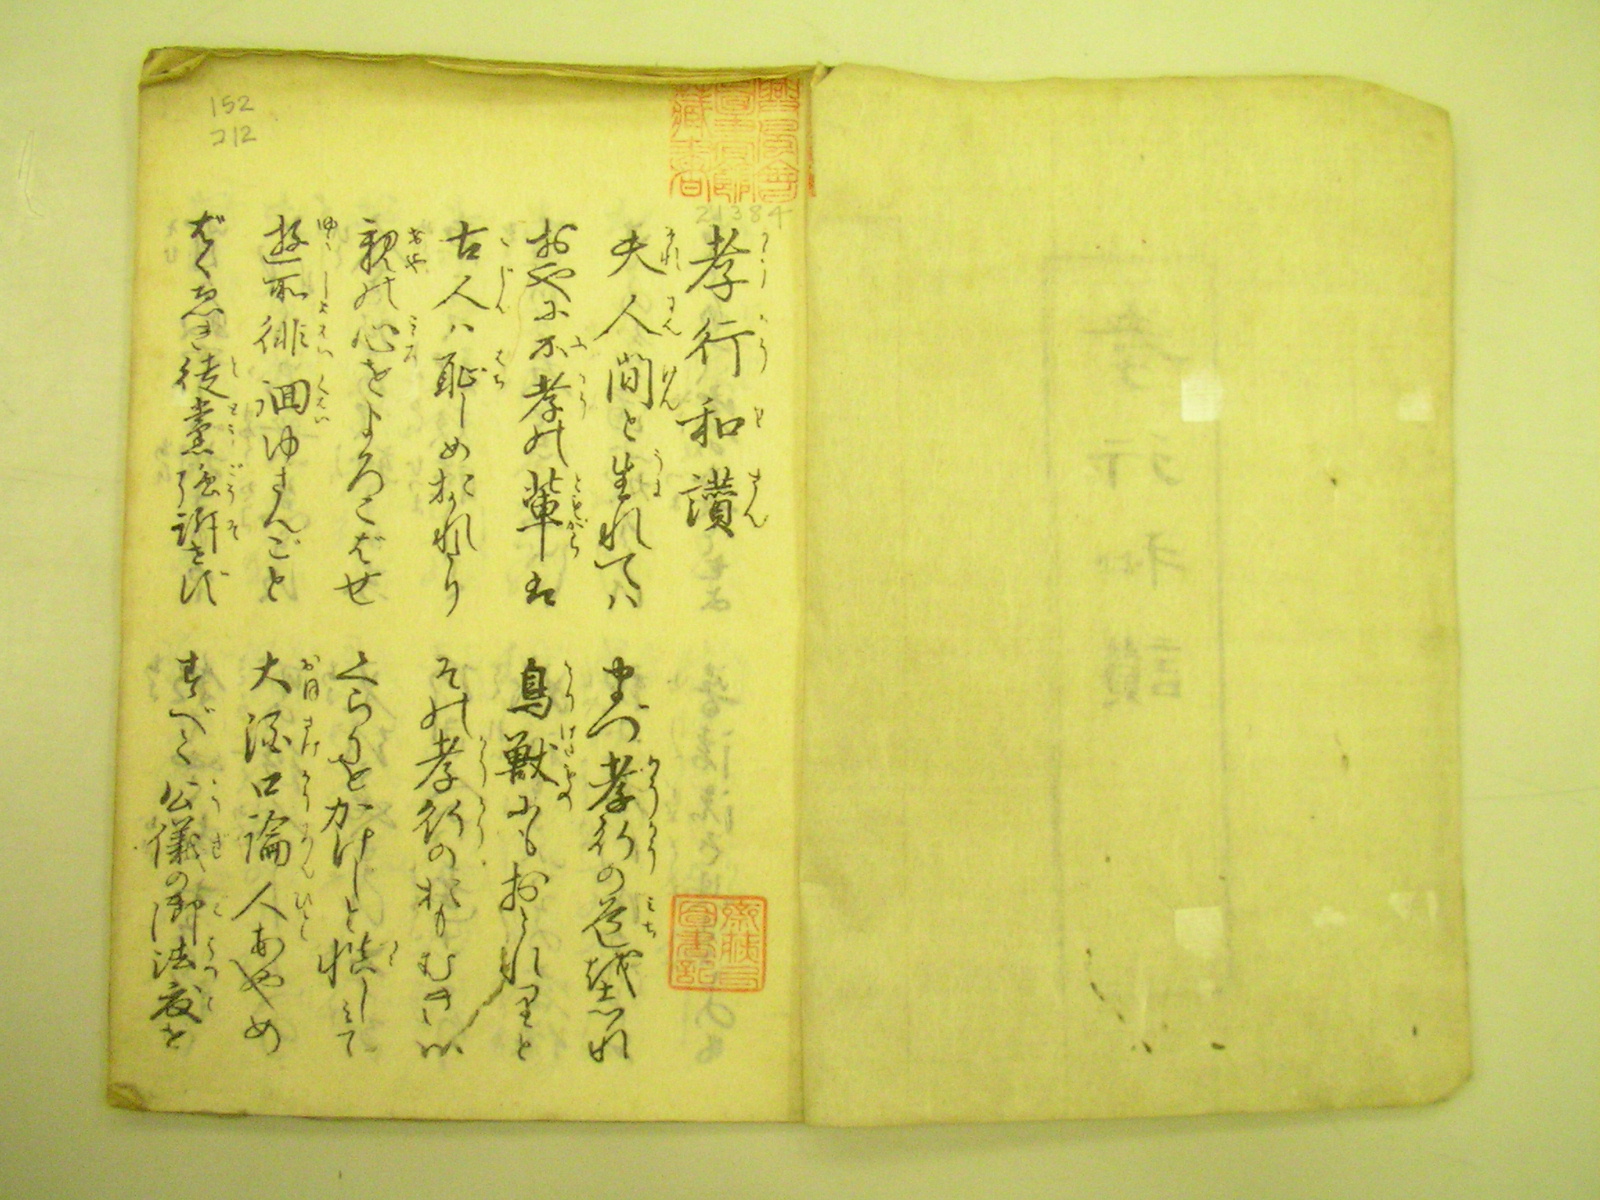 152
212
興風會
圖書館
藏書
21384
孝行和讃
夫人間と生れてハ まづ孝行の道をしれ
おやに不孝の輩は 鳥獣にもおとれりと
古人ハ恥しめおかれたり その孝行のおもむきハ
親の心をよろこばせ くらうをかけじと慎しみて
遊所徘徊ゆさんごと 大酒口論人あやめ
ばくゑき徒党強訴 すべて公儀の御法度を